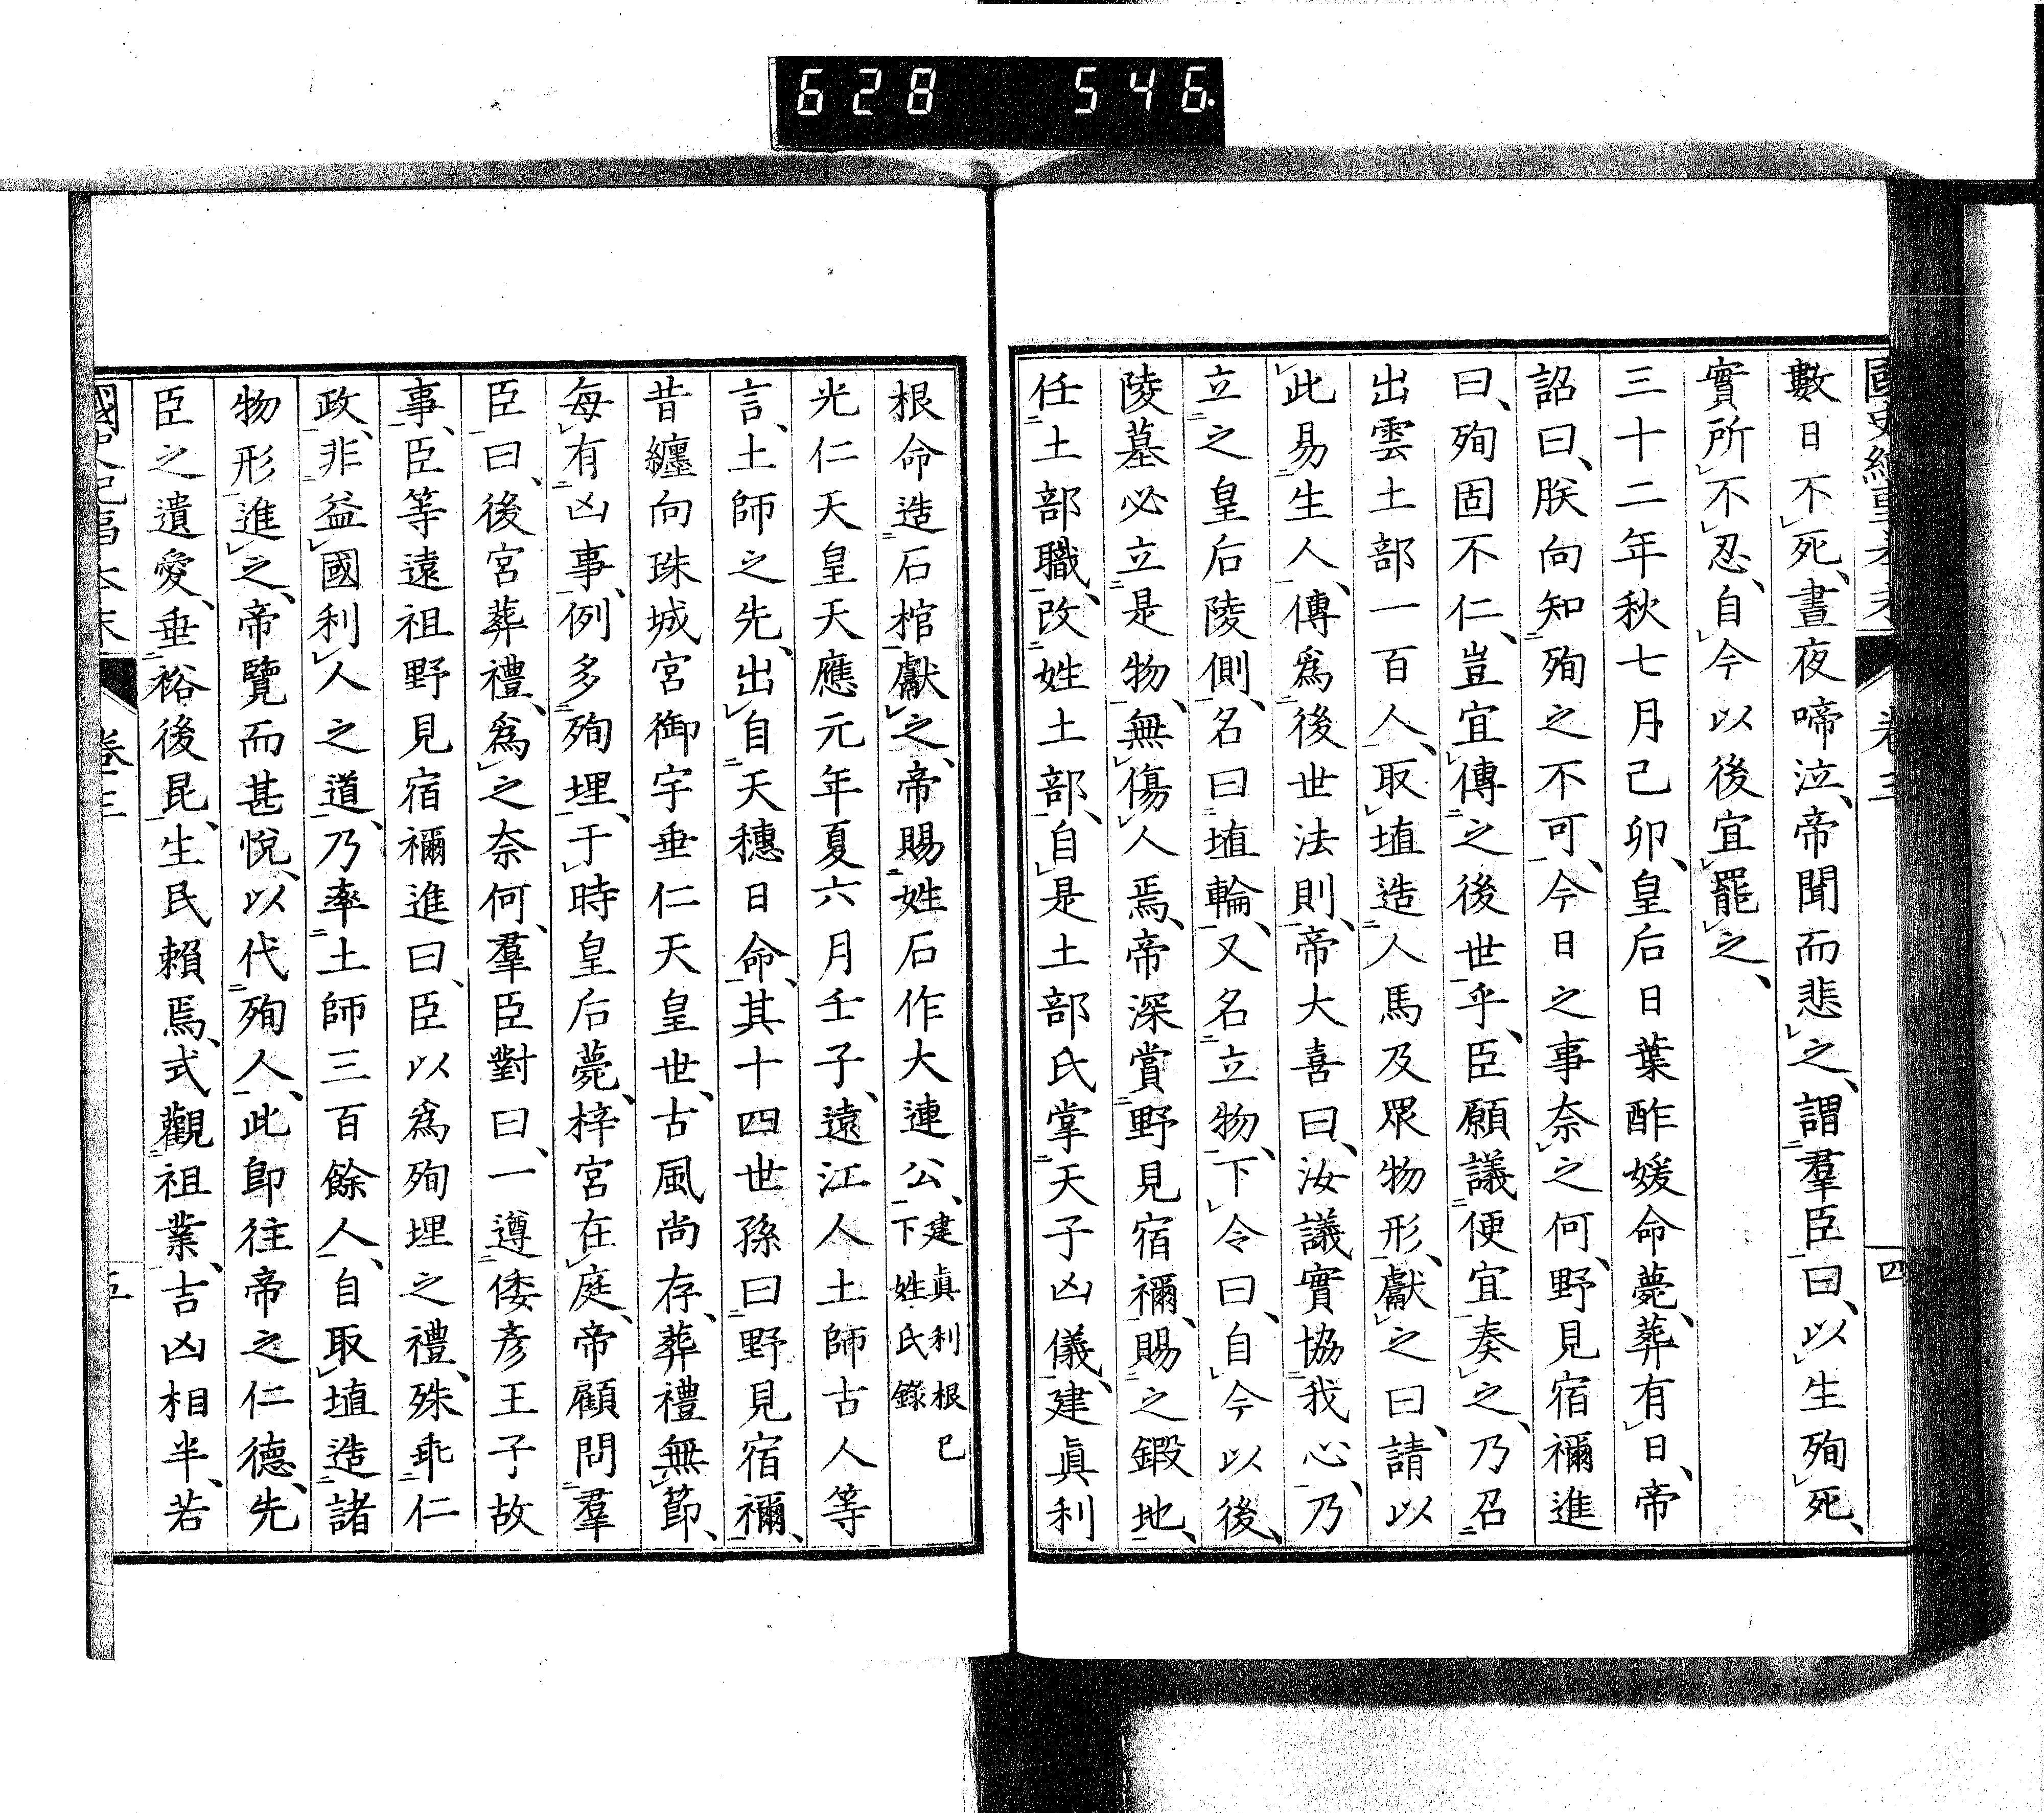 628 546
數日不死、晝夜啼泣、帝聞而悲之、謂二羣臣一曰、以生殉死、
實所不忍、自今以後宜罷之、
三十二年秋七月己卯、皇后日葉酢媛命薨、葬有日、帝
詔曰、朕向知二殉之不可一、今日之事奈之何、野見宿禰進
曰、殉固不仁、豈宜傳二之後世一乎、臣願議二便宜一奏之、乃召二
出雲土部一百人一、取埴造二人馬及眾物形一、獻之曰、請以
此易二生人一、傳爲二後世法則一、帝大喜曰、汝議實協二我心一、乃
立二之皇后陵側一、名曰二埴輪一、又名二立物一、下令曰、自今以後、
陵墓必立二是物一、無傷人焉、帝深賞二野見宿禰一、賜二之鍛地一、
任二土部職一、改二姓土部一、自是土部氏掌二天子凶儀一、建眞利
四
根命造二石棺一獻之、帝賜二姓石作大連公一、建眞利根巳下姓氏錄
光仁天皇天應元年夏六月壬子、遠江人土師古人等
言、土師之先、出自二天穗日命一、其十四世孫曰二野見宿禰一、
昔纏向珠城宮御宇垂仁天皇世、古風尚存、葬禮無節、
每有二凶事一、例多二殉埋一、于時皇后薨、梓宮在庭、帝顧問二羣
臣一曰、後宮葬禮、爲之奈何、羣臣對曰、一遵二倭彦王子故
事一、臣等遠祖野見宿禰進曰、臣以爲殉埋之禮、殊乖二仁
政一、非二益國利人之道一、乃率二土師三百餘人一、自取埴造二諸
物形一進之、帝覽而甚悅、以代二殉人一、此卽往帝之仁德、先
臣之遺愛、垂二裕後昆一、生民賴焉、式觀二祖業一、吉凶相半、若
國史紀事本末 卷三 五